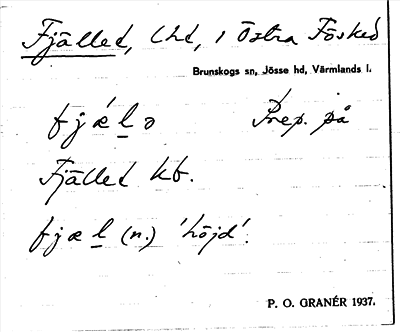 Fjälled, lhd, i Östra Fösked
Brunskogs sn, Jösse hd, Värmlands l.
fjǽlə Prep. på
Fjälled kb.
fjæl (n.) 'höjd'.
P. O. GRANÉR 1937.